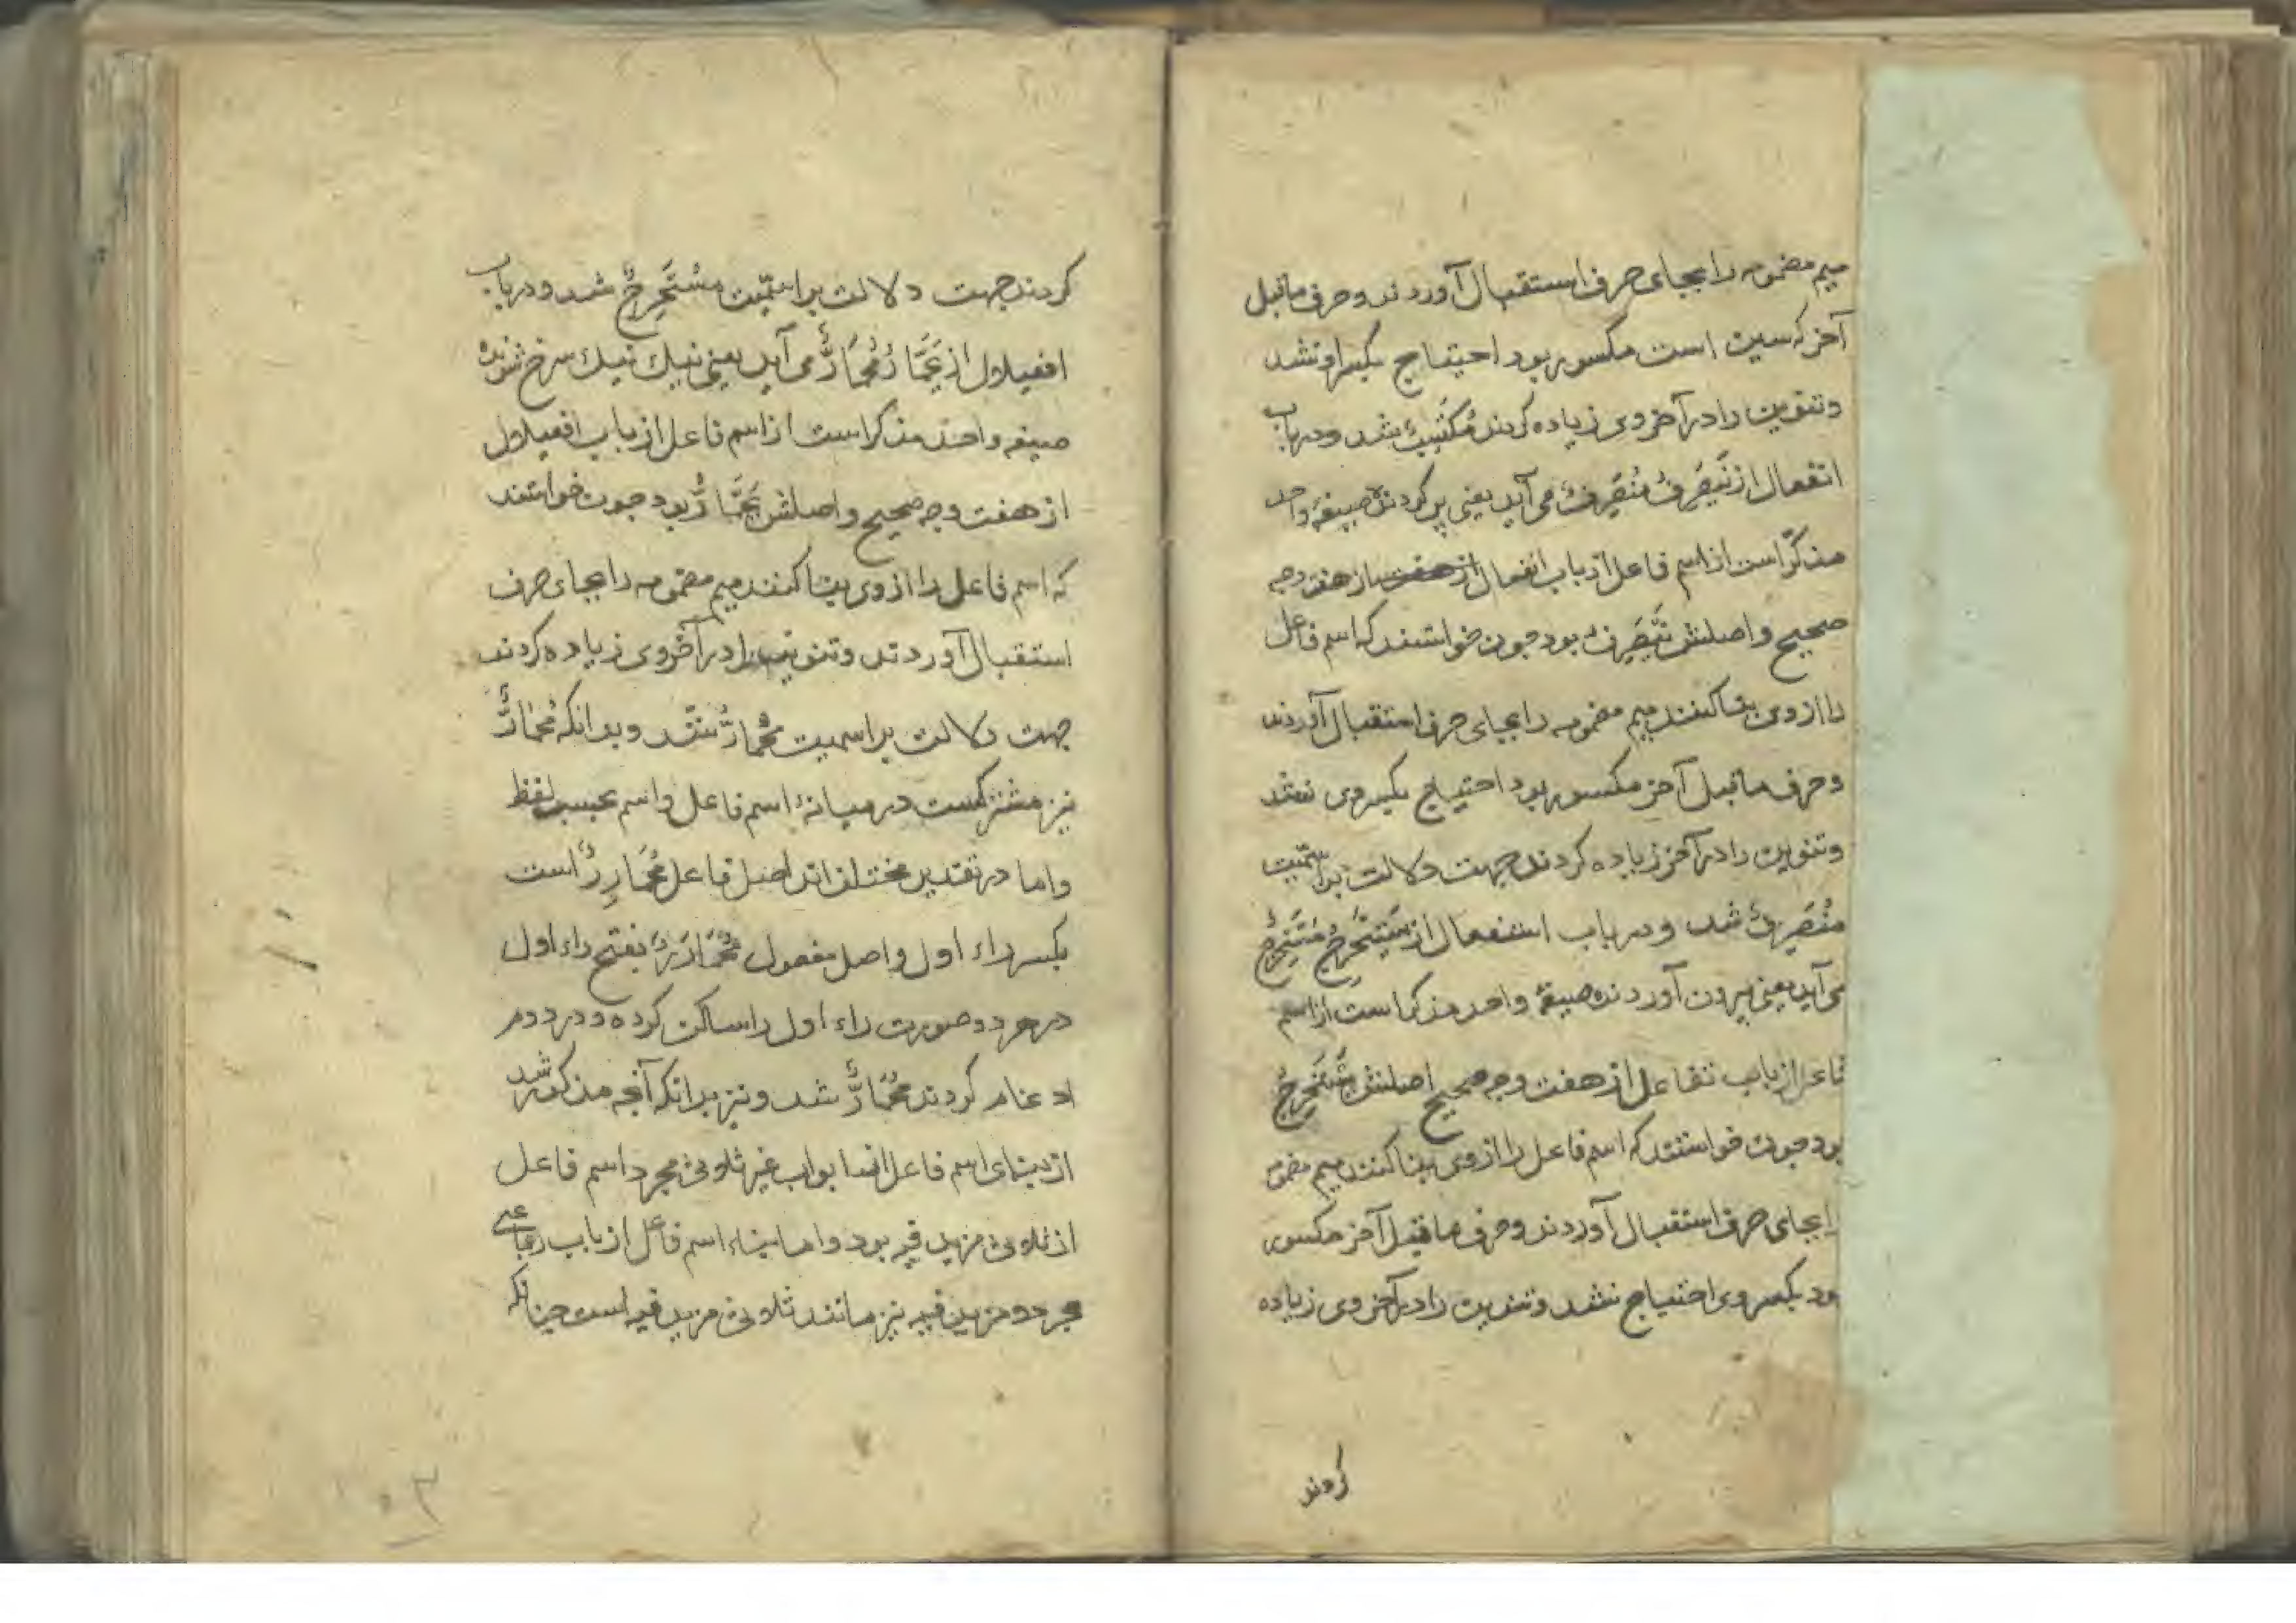 میم مضمومه را بجای حرف استقبال آوردند و حرف ماقبل
آخر که سین است مکسور بود احتیاج بکسر او نشد
و تنوین را در آخر وی زیاده کردند شد و در باب
انفعال از یَنْصَرِفُ مُنْصَرِفٌ می آید یعنی بر کردنده صیغهٔ واحد
مذکّر است از اسم فاعل از باب انفعال از هفت از هفت وجه
صحیح و اصلش یَنْصَرِفُ بود چون خواستند که اسم فاعل
را از وی بنا کنند میم مضمومه را بجای حرف استقبال آوردند
و حرف ماقبل آخر مکسور بود احتیاج بکسر وی نشد
و تنوین را در آخر زیاده کردند جهت دلالت بر اسمیّت
مُنْصَرِفٌ شد و در باب استفعال از یَسْتَخْرِجُ مُسْتَخْرِجٌ
می آید یعنی بیرون آورده صیغهٔ واحد مذکر است از اسم
فاعل از باب تفاعل از هفت وجه صحیح اصلش یَسْتَخْرِجُ
بود چون خواستند که اسم فاعل را از وی بنا کنند میم مضمومه
را بجای حرف استقبال آوردند و حرف ماقبل آخر مکسور
بود بکسر وی احتیاج نشد و تنوین را در آخر وی زیاده
کردند
کردند جهت دلالت بر اسمیّت مُسْتَخْرِجٌ شد و در باب
افعیلال از یَحْمَارُّ مُحْمَارٌّ می آید یعنی نیک نیک سرخ شونده
صیغه واحد مذکر است از اسم فاعل از باب افعیلال
از هفت وجه صحیح و اصلش یَحْمَارُّ بود چون خواستند
که اسم فاعل را از وی بنا کنند میم مضمومه را بجای حرف
استقبال آوردند و تنوین را در آخر وی زیاده کردند
جهت دلالت بر اسمیت مُحْمَارٌّ شد و بدانکه مُحْمَارٌّ
نیز مشترکست در میانهٔ اسم فاعل و اسم بحسب لفظ
و اما در تقدیر مختلف اند اصل فاعل مُحْمَارِرٌ است
بکسر راء اول و اصل مفعول مُحْمَارَرٌ بفتح راء اول
در هر دو صورت راء اول را ساکن کرده و در دوم
ادغام کردند مُحْمَارٌّ شد و نیز بدانکه آنچه مذکور شد
از بنای اسم فاعل از ابواب غیر ثلاثی مجرد اسم فاعل
از ثلاثی مزید فیه بود و اما بناء اسم فاعل از باب رباعی
مجرد و مزید فیه نیز مانند ثلاثی مزید فیه است چنانکه